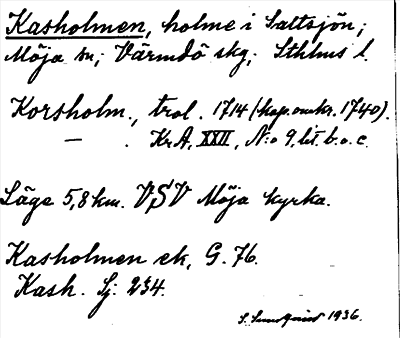 Kasholmen, holme i Saltsjön;
Möja sn; Värmdö skg; Sthlms l.
Korsholm., trol. 1714 (kop. omkr. 1740).
— . KrA, XXII, N:o 9, lit. b. o. c.
Läge 5,8 km. VSV Möja kyrka.
Kasholmen ek, G. 76.
Kash. Sj: 234.
S. Sundqvist 1936.